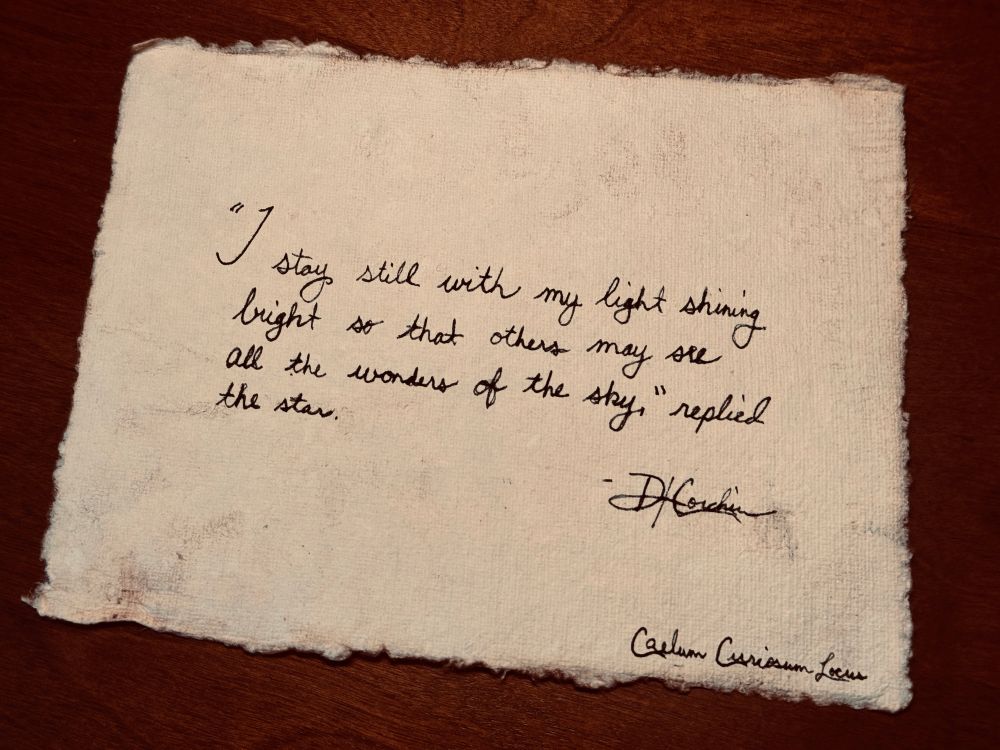 "I stay still with my light shining
bright so that others may see
all the wonders of the sky," replied
the star.
- D/Corchin
Caelum Curiosum Locus